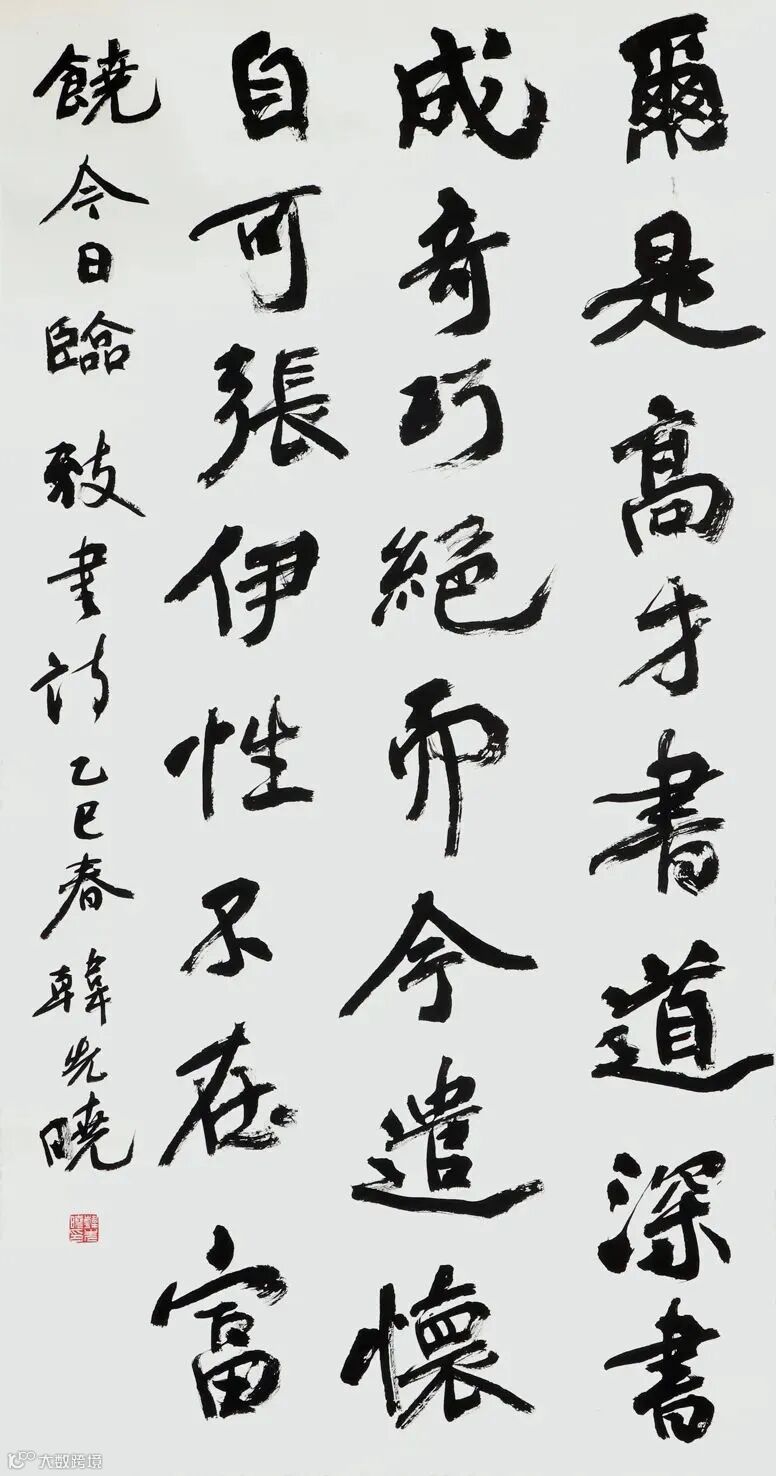 爾是高才書道深書
成奇巧絕而今遣懷
自可張伊性不在富
饒今日臨 書詩乙巳春韓先曉
大数跨境